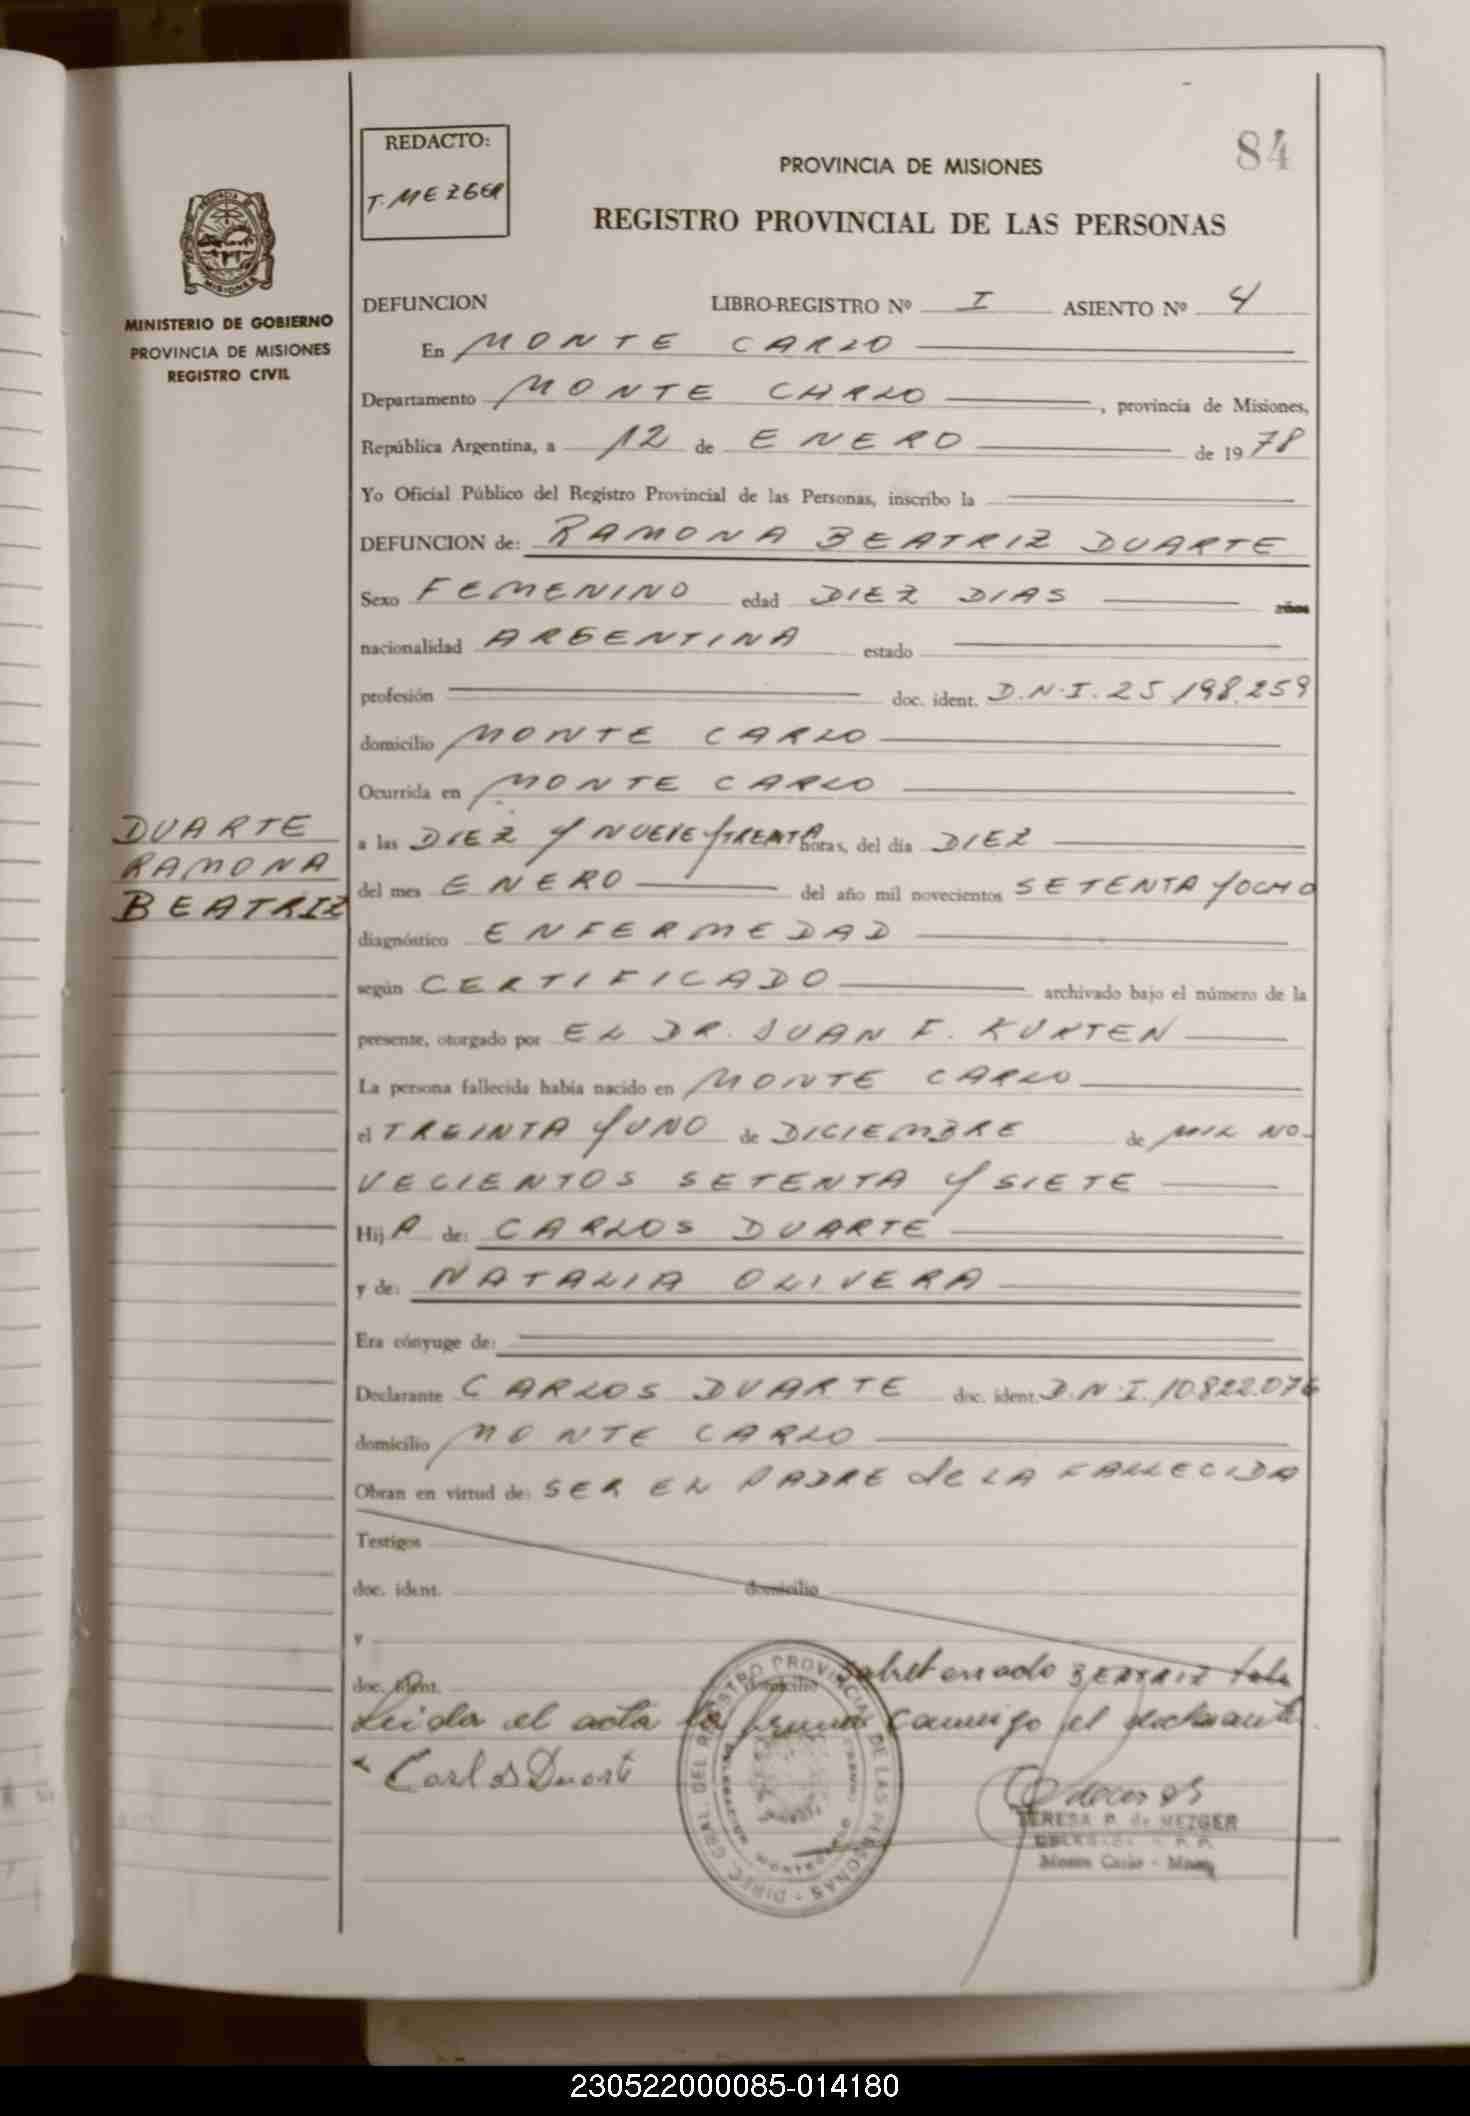 84
REDACTO:
T. MEZGER
PROVINCIA DE MISIONES
REGISTRO PROVINCIAL DE LAS PERSONAS
MINISTERIO DE GOBIERNO
PROVINCIA DE MISIONES
REGISTRO CIVIL
DEFUNCION LIBRO-REGISTRO Nº I ASIENTO Nº 4
En MONTE CARLO
Departamento MONTE CARLO, provincia de Misiones,
República Argentina, a 12 de ENERO de 1978
Yo Oficial Público del Registro Provincial de las Personas, inscribo la
DEFUNCION de: RAMONA BEATRIZ DUARTE
Sexo FEMENINO edad DIEZ DIAS años
nacionalidad ARGENTINA estado
profesión doc. ident. D.N.I. 25.198.259
domicilio MONTE CARLO
Ocurrida en MONTE CARLO
DUARTE
RAMONA
BEATRIZ
a las DIEZ Y NUEVE Y TREINTA horas, del día DIEZ
del mes ENERO del año mil novecientos SETENTA Y OCHO
diagnóstico ENFERMEDAD
según CERTIFICADO archivado bajo el número de la
presente, otorgado por EL DR. JUAN F. KURTEN
La persona fallecida había nacido en MONTE CARLO
el TREINTA Y UNO de DICIEMBRE de MIL NO-
VECIENTOS SETENTA Y SIETE
HijA de: CARLOS DUARTE
y de: NATALIA OLIVERA
Era cónyuge de:
Declarante CARLOS DUARTE doc. ident. D.N.I. 10.822.076
domicilio MONTE CARLO
Obran en virtud de: SER EL PADRE de LA FALLECIDA
Testigos
doc. ident. domicilio
y
doc. ident. domicilio Sobreborrado BEATRIZ Vale
Leida el acta la firma conmigo el declarante.
Carlos Duarte
TERESA P. de MEZGER
DELEGADA R. P. P.
Monte Carlo - Mnes.
DIREC. GRAL. DEL REGISTRO PROVINCIAL DE LAS PERSONAS
DELEGACION MONTECARLO
230522000085-014180